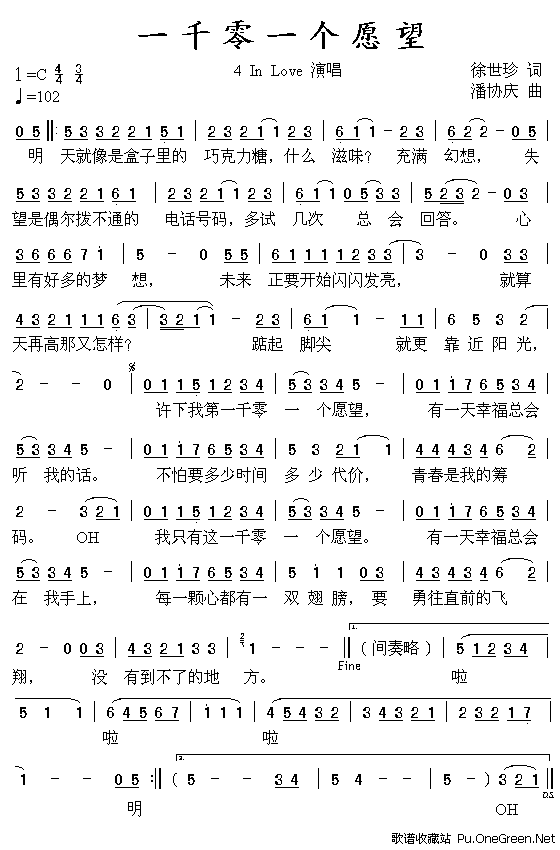 一千零一个愿望
1=C 4/4 3/4
4 In Love 演唱
徐世珍 词
♩=102
潘协庆 曲
0 5 ‖: 5 3 3 2 2 1 5 1 | 2 3 2 1 1 2 3 | 6 1 1 - 2 3 | 6 2 2 - 0 5 |
明 天就像是盒子里的 巧克力糖，什么 滋味？ 充满 幻想， 失
5 3 3 2 2 1 6 1 | 2 3 2 1 1 2 3 | 6 1 1 - 5 1 | 5 2 3 2 - 0 3 |
望是偶尔拨不通的 电话号码，多试 几次 总 会 回答。 心
3 6 6 6 7 1 | 5 - 0 5 5 | 6 1 1 1 1 2 3 3 | 3 - 0 3 3 |
里有好多的梦 想， 未来 正要开始闪闪发亮， 就算
4 3 2 1 1 1 6 3 | 3 2 1 1 - 2 3 | 5 1 1 - 1 1 | 6 5 3 2 |
天再高那又怎样？ 踮起 脚尖 就更 靠近阳光，
2 - - 0 | 0 1 1 5 1 2 3 4 | 5 3 4 5 - | 0 1 1 7 6 5 3 4 |
许下我第一千零 一 个愿望， 有一天幸福总会
5 3 3 4 5 - | 0 1 1 7 6 5 3 4 | 5 3 2 1 1 | 4 4 4 3 4 6 2 |
听 我的话。 不怕要多少时间 多少代价， 青春是我的筹
2 - 3 2 1 | 0 1 1 5 1 2 3 4 | 5 3 4 5 - | 0 1 1 7 6 5 3 4 |
码。 OH 我只有这一千零 一个愿望。 有一天幸福总会
5 3 3 4 5 - | 0 1 1 7 6 5 3 4 | 5 1 1 0 3 | 4 4 3 4 6 2 |
在 我手上， 每一颗心都有一 双翅膀，要 勇往直前的飞
2 - 0 0 3 | 4 3 2 1 3 3 | 1 - - - ‖ (间奏略) | 5 1 2 3 4 |
Fine
翔， 没 有到不了的地 方。 啦
5 1 1 | 6 4 5 6 7 | 1 1 1 | 4 5 4 3 2 | 3 4 3 2 1 | 2 3 2 1 1 7 |
啦 啦
1 - - 0 5 :‖ ( 5 - - 3 4 | 5 - - 3 4 | 5 - - - ) 3 2 1 ‖
D.S.
明 OH
歌谱收藏站 Pu.OneGreen.Net